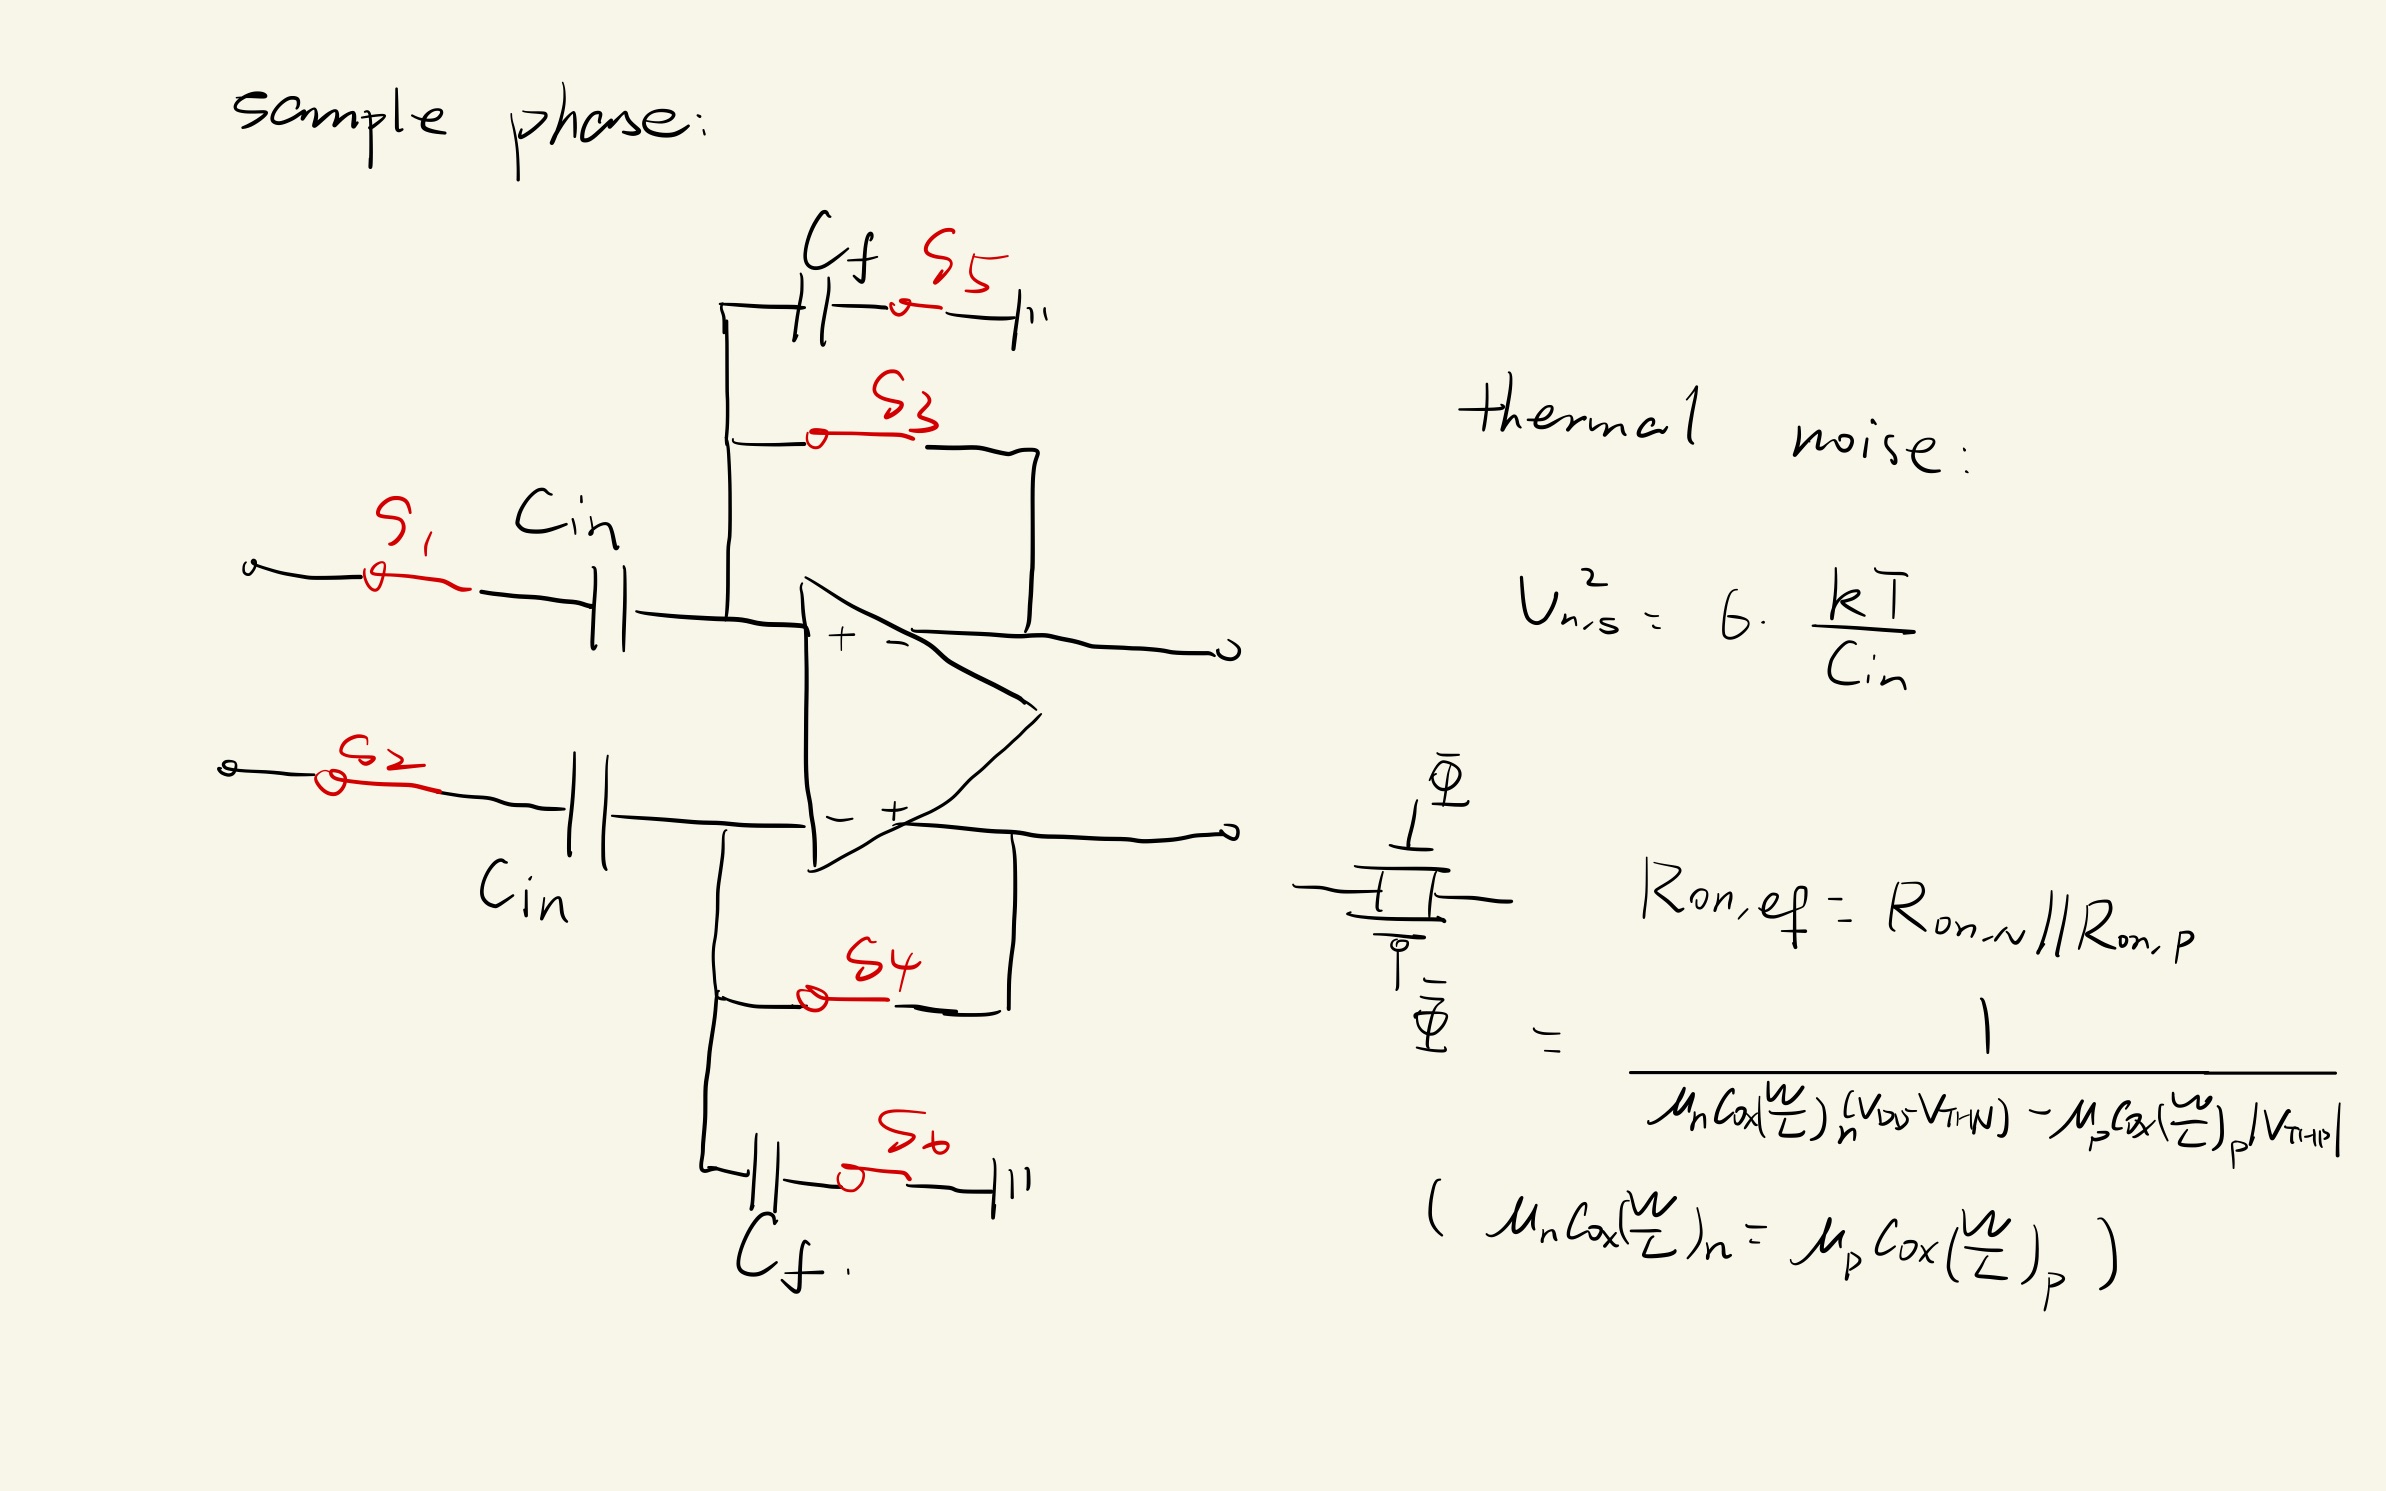 sample phase:
Cf S5
S3
S1 Cin
+ −
S2
− +
Cin
S4
S6
Cf.
thermal noise:
Vn,s² = 6 · kT / Cin
Φ̄
Ron,ef = Ron,N // Ron,p
Φ̄
= 1 / μnCox(W/L)n(VDD-VTHN) − μpCox(W/L)p|VTHP|
( μnCox(W/L)n = μpCox(W/L)p )